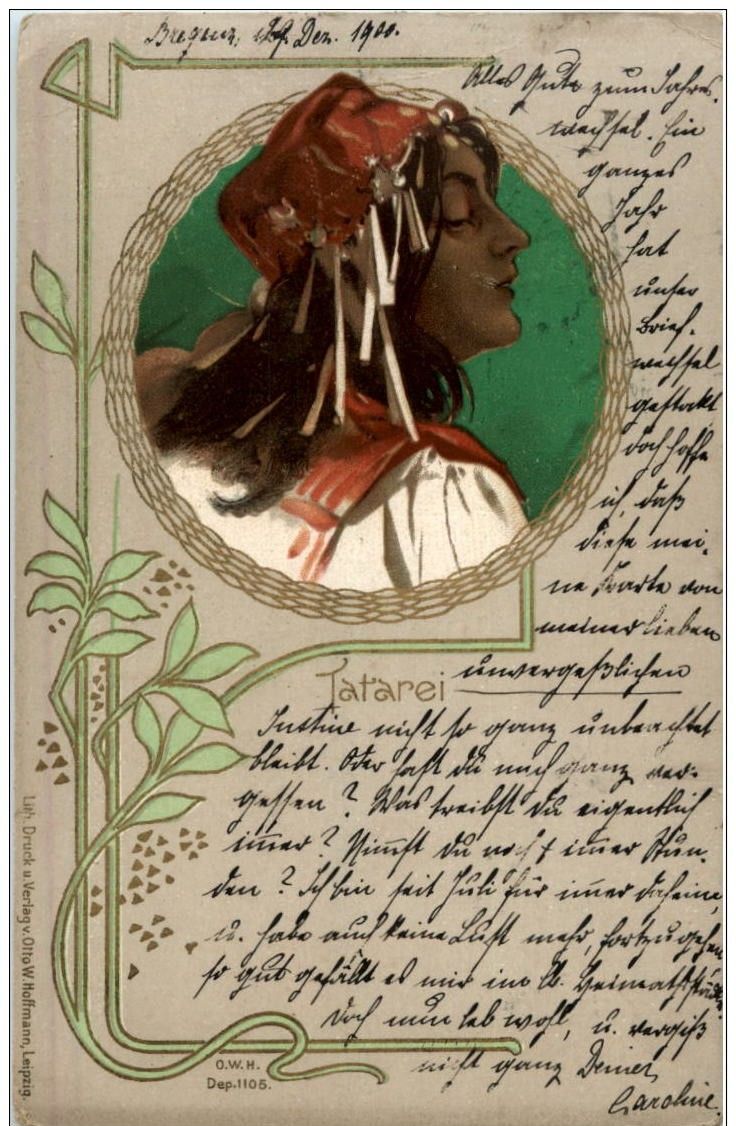 Bregenz, 29. Dez. 1900.
Alles Gute zum Jahres-
wechsel. Ein
ganzes
Jahr
hat
unser
Brief-
wechsel
gestockt
doch hoffe
ich, daß
diese mei-
ne Karte von
meiner lieben
unvergeßlichen
Tatarei
Justine nicht so ganz unbeachtet
bleibt. Oder hast du mich ganz ver-
gessen? Was treibst du eigentlich
im̅er? Nim̅st du noch im̅er Stun-
den? Ich bin seit Juli für im̅er daheim,
u. habe auch keine Lust mehr, fortzugehen
so gut gefällt es mir im lb. Heimathstädtch.
Doch nun leb wohl, u. vergiß
nicht ganz Deiner
Caroline.
O.W.H.
Dep. 1105.
Lith. Druck u. Verlag v. Otto W. Hoffmann, Leipzig.